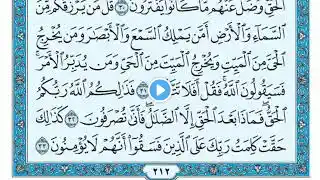 ٱلۡحَقِّۖ وَضَلَّ عَنۡهُم مَّا كَانُواْ يَفۡتَرُونَ ٣٠ قُلۡ مَن يَرۡزُقُكُم مِّنَ
ٱلسَّمَآءِ وَٱلۡأَرۡضِ أَمَّن يَمۡلِكُ ٱلسَّمۡعَ وَٱلۡأَبۡصَٰرَ وَمَن يُخۡرِجُ
ٱلۡحَيَّ مِنَ ٱلۡمَيِّتِ وَيُخۡرِجُ ٱلۡمَيِّتَ مِنَ ٱلۡحَيِّ وَمَن يُدَبِّرُ ٱلۡأَمۡرَۚ
فَسَيَقُولُونَ ٱللَّهُۚ فَقُلۡ أَفَلَا ٣١ فَذَٰلِكُمُ ٱللَّهُ رَبُّكُمُ
ٱلۡحَقُّۖ فَمَاذَا بَعۡدَ ٱلۡحَقِّ إِلَّا ٱلضَّلَٰلُۖ فَأَنَّىٰ تُصۡرَفُونَ ٣٢ كَذَٰلِكَ
حَقَّتۡ كَلِمَتُ رَبِّكَ عَلَى ٱلَّذِينَ فَسَقُوٓاْ أَنَّهُمۡ لَا يُؤۡمِنُونَ ٣٣
٢١٢